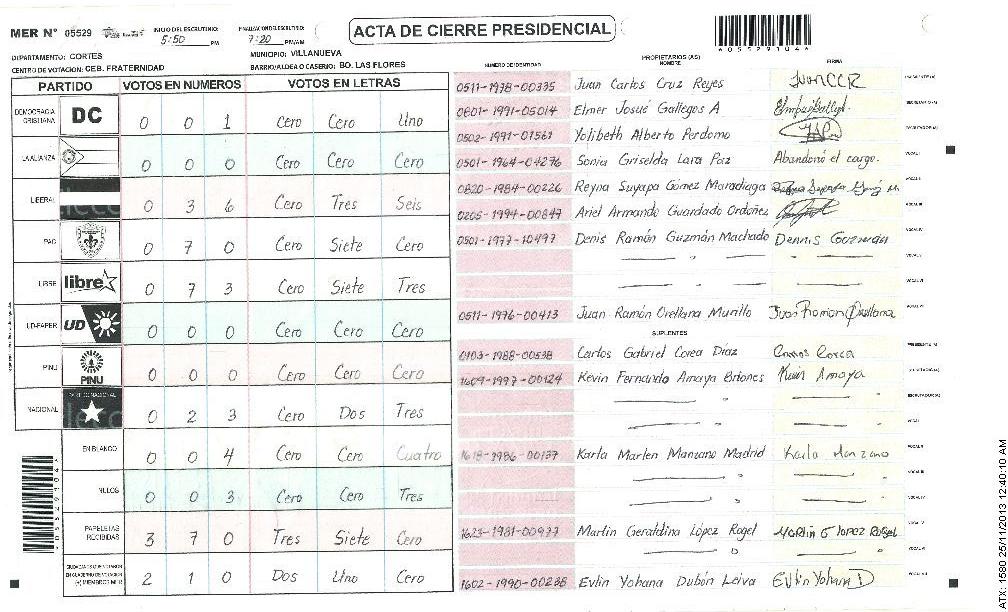 MER Nº 05529
INICIO DEL ESCRUTINIO: 5:50 PM
FINALIZACION DEL ESCRUTINIO: 7:20 PM/AM
ACTA DE CIERRE PRESIDENCIAL
DEPARTAMENTO: CORTES
MUNICIPIO: VILLANUEVA
CENTRO DE VOTACION: CEB. FRATERNIDAD
BARRIO/ALDEA O CASERIO: BO. LAS FLORES
PARTIDO VOTOS EN NUMEROS VOTOS EN LETRAS
DEMOCRACIA CRISTIANA DC 0 0 1 Cero Cero Uno
LA ALIANZA 0 0 0 Cero Cero Cero
LIBERAL 0 3 6 Cero Tres Seis
PAC 0 7 0 Cero Siete Cero
LIBRE libre 0 7 3 Cero Siete Tres
UD-FAPER UD 0 0 0 Cero Cero Cero
PINU PINU 0 0 0 Cero Cero Cero
NACIONAL 0 2 3 Cero Dos Tres
EN BLANCO 0 0 4 Cero Cero Cuatro
NULOS 0 0 3 Cero Cero Tres
PAPELETAS RECIBIDAS 3 7 0 Tres Siete Cero
CIUDADANOS QUE VOTARON EN CUADERNO DE VOTACION (+) MIEMBROS MER 2 1 0 Dos Uno Cero
NUMERO DE IDENTIDAD PROPIETARIOS (AS) NOMBRE FIRMA
0511-1978-00335 Juan Carlos Cruz Reyes
0801-1991-05014 Elmer Josué Gallegos A
0502-1991-01561 Yolibeth Alberto Perdomo
0501-1964-04276 Sonia Griselda Lara Paz Abandonó el cargo.
0820-1984-00226 Reyna Suyapa Gómez Maradiaga
0205-1994-00847 Ariel Armando Guardado Ordoñez
0501-1977-10497 Denis Ramón Guzmán Machado Dennis Guzman
0511-1976-00413 Juan Ramón Orellana Murillo Juan Ramon Orellana
SUPLENTES
0103-1988-00538 Carlos Gabriel Corea Díaz
1609-1997-00124 Kevin Fernando Amaya Briones Kevin Amaya
1618-1986-00137 Karla Marlen Manzano Madrid Karla Manzano
1623-1981-00937 Martin Geraldina López Rogel
1602-1990-00238 Evlin Yohana Dubón Leiva Evlin Yohana D
ATX: 1580 25/11/2013 12:40:10 AM